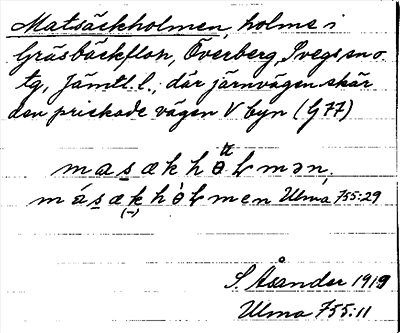 Matsäckholmen, holme i
Gräsbäckflon, Överberg, Svegs sn o
tg, Jämtl. l., där järnvägen skär
den prickade vägen V byn (G 77)
masækhɵɫmən.
másækhɵ̀ɫmen Ulma 755:29
(-)
S. Åsander 1919
Ulma 755:11